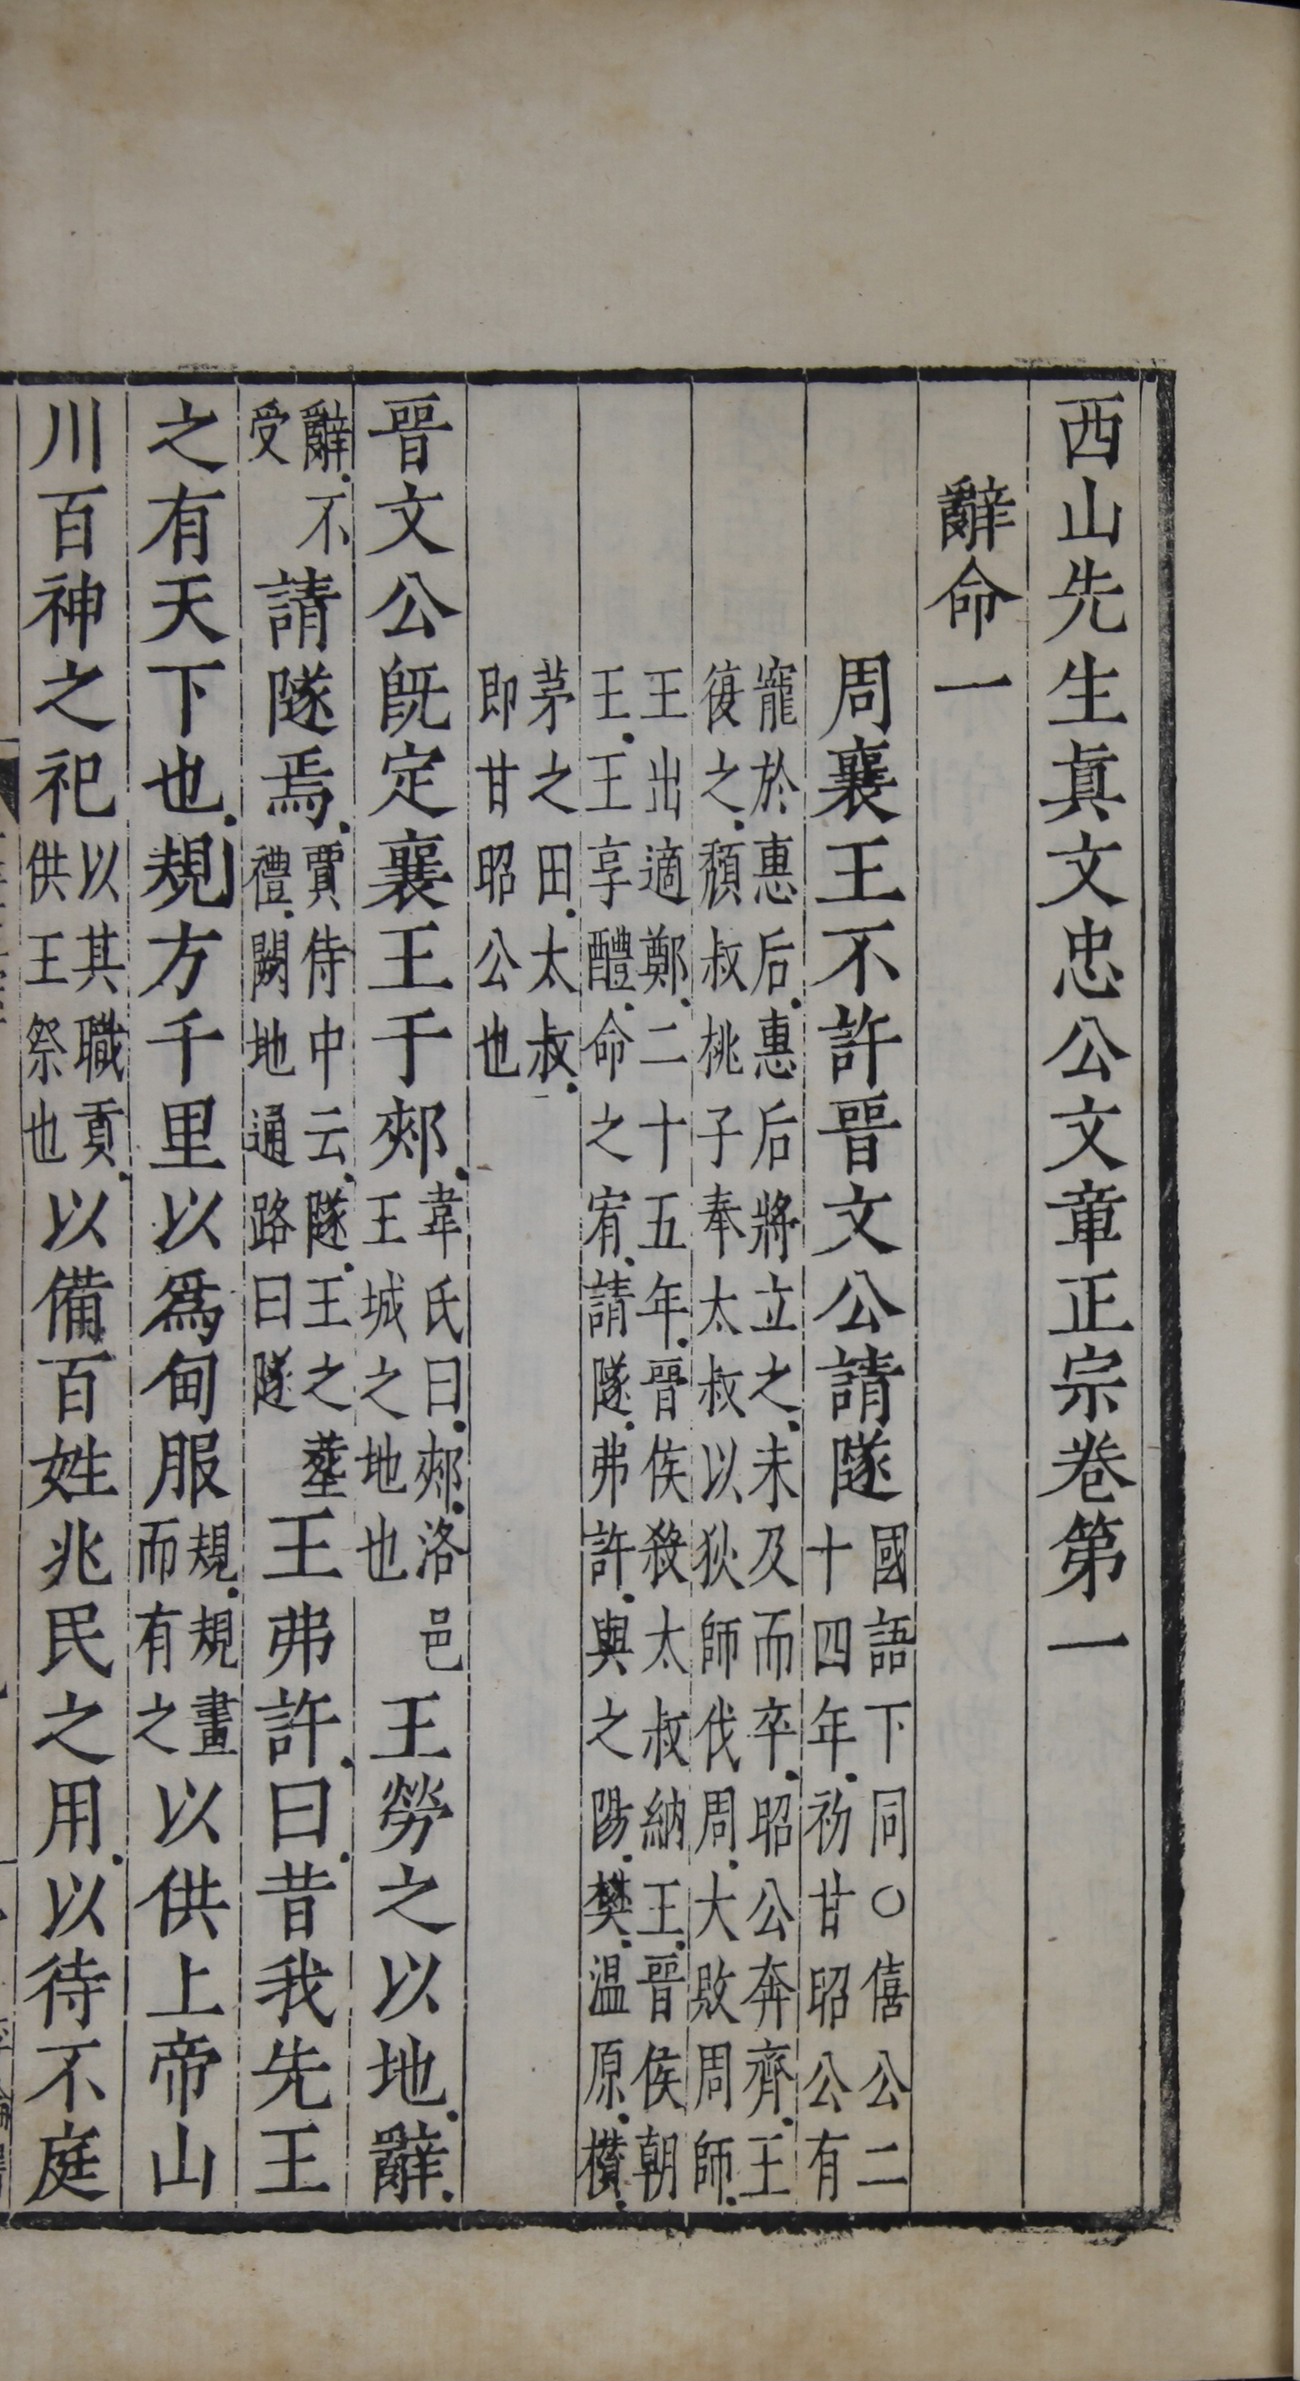 西山先生真文忠公文章正宗卷第一
辭命一
周襄王不許晉文公請隧國語下同○僖公二十四年初甘昭公有
寵於惠后惠后將立之未及而卒昭公奔齊王復之頹叔桃子奉太叔以狄師伐周大敗周師
王出適鄭二十五年晉侯殺太叔納王晉侯朝王王享醴命之宥請隧弗許與之陽樊温原欑
茅之田太叔即甘昭公也
晉文公旣定襄王于郟韋氏曰郟洛邑王城之地也王勞之以地辭
辭不受請隧焉賈侍中云隧王之葬禮闕地通路曰隧王弗許曰昔我先王
之有天下也規方千里以爲甸服規規畫而有之以供上帝山
川百神之祀以其職貢供王祭也以備百姓兆民之用以待不庭